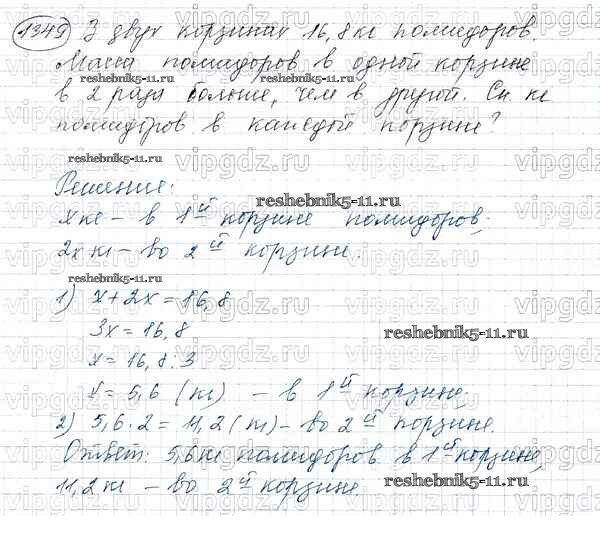 1349 З двух корзинах 16,8 кг помидоров.
Масса помидоров в одной корзине
в 2 раза больше, чем в другой. Ск. кг
помидоров в каждой корзине?
Решение:
x кг – в 1ой корзине помидоров,
2x кг – во 2ой корзине.
1) x + 2x = 16,8
3x = 16,8
x = 16,8 : 3
x = 5,6 (кг) – в 1ой корзине,
2) 5,6 · 2 = 11,2 (кг) – во 2ой корзине.
Ответ: 5,6 кг помидоров в 1ой корзине,
11,2 кг – во 2ой корзине.
reshebnik5-11.ru
reshebnik5-11.ru
reshebnik5-11.ru
reshebnik5-11.ru
reshebnik5-11.ru
reshebnik5-11.ru
reshebnik5-11.ru
vipgdz.ru